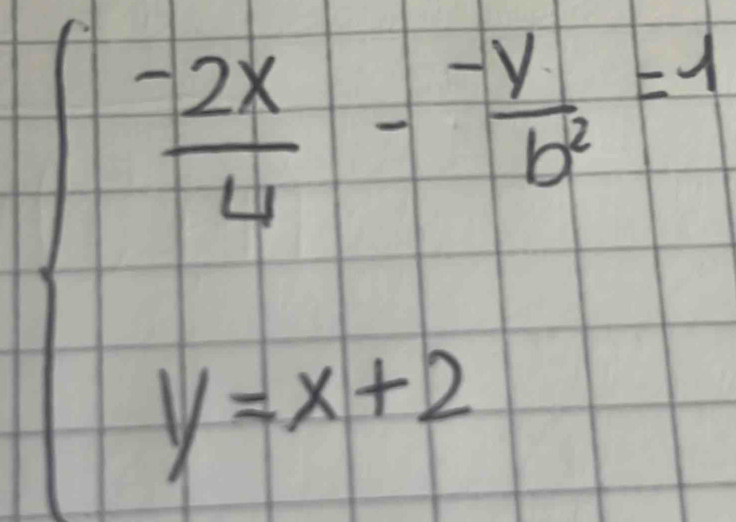 { -2x/4 - -y/b² = 1
y = x + 2